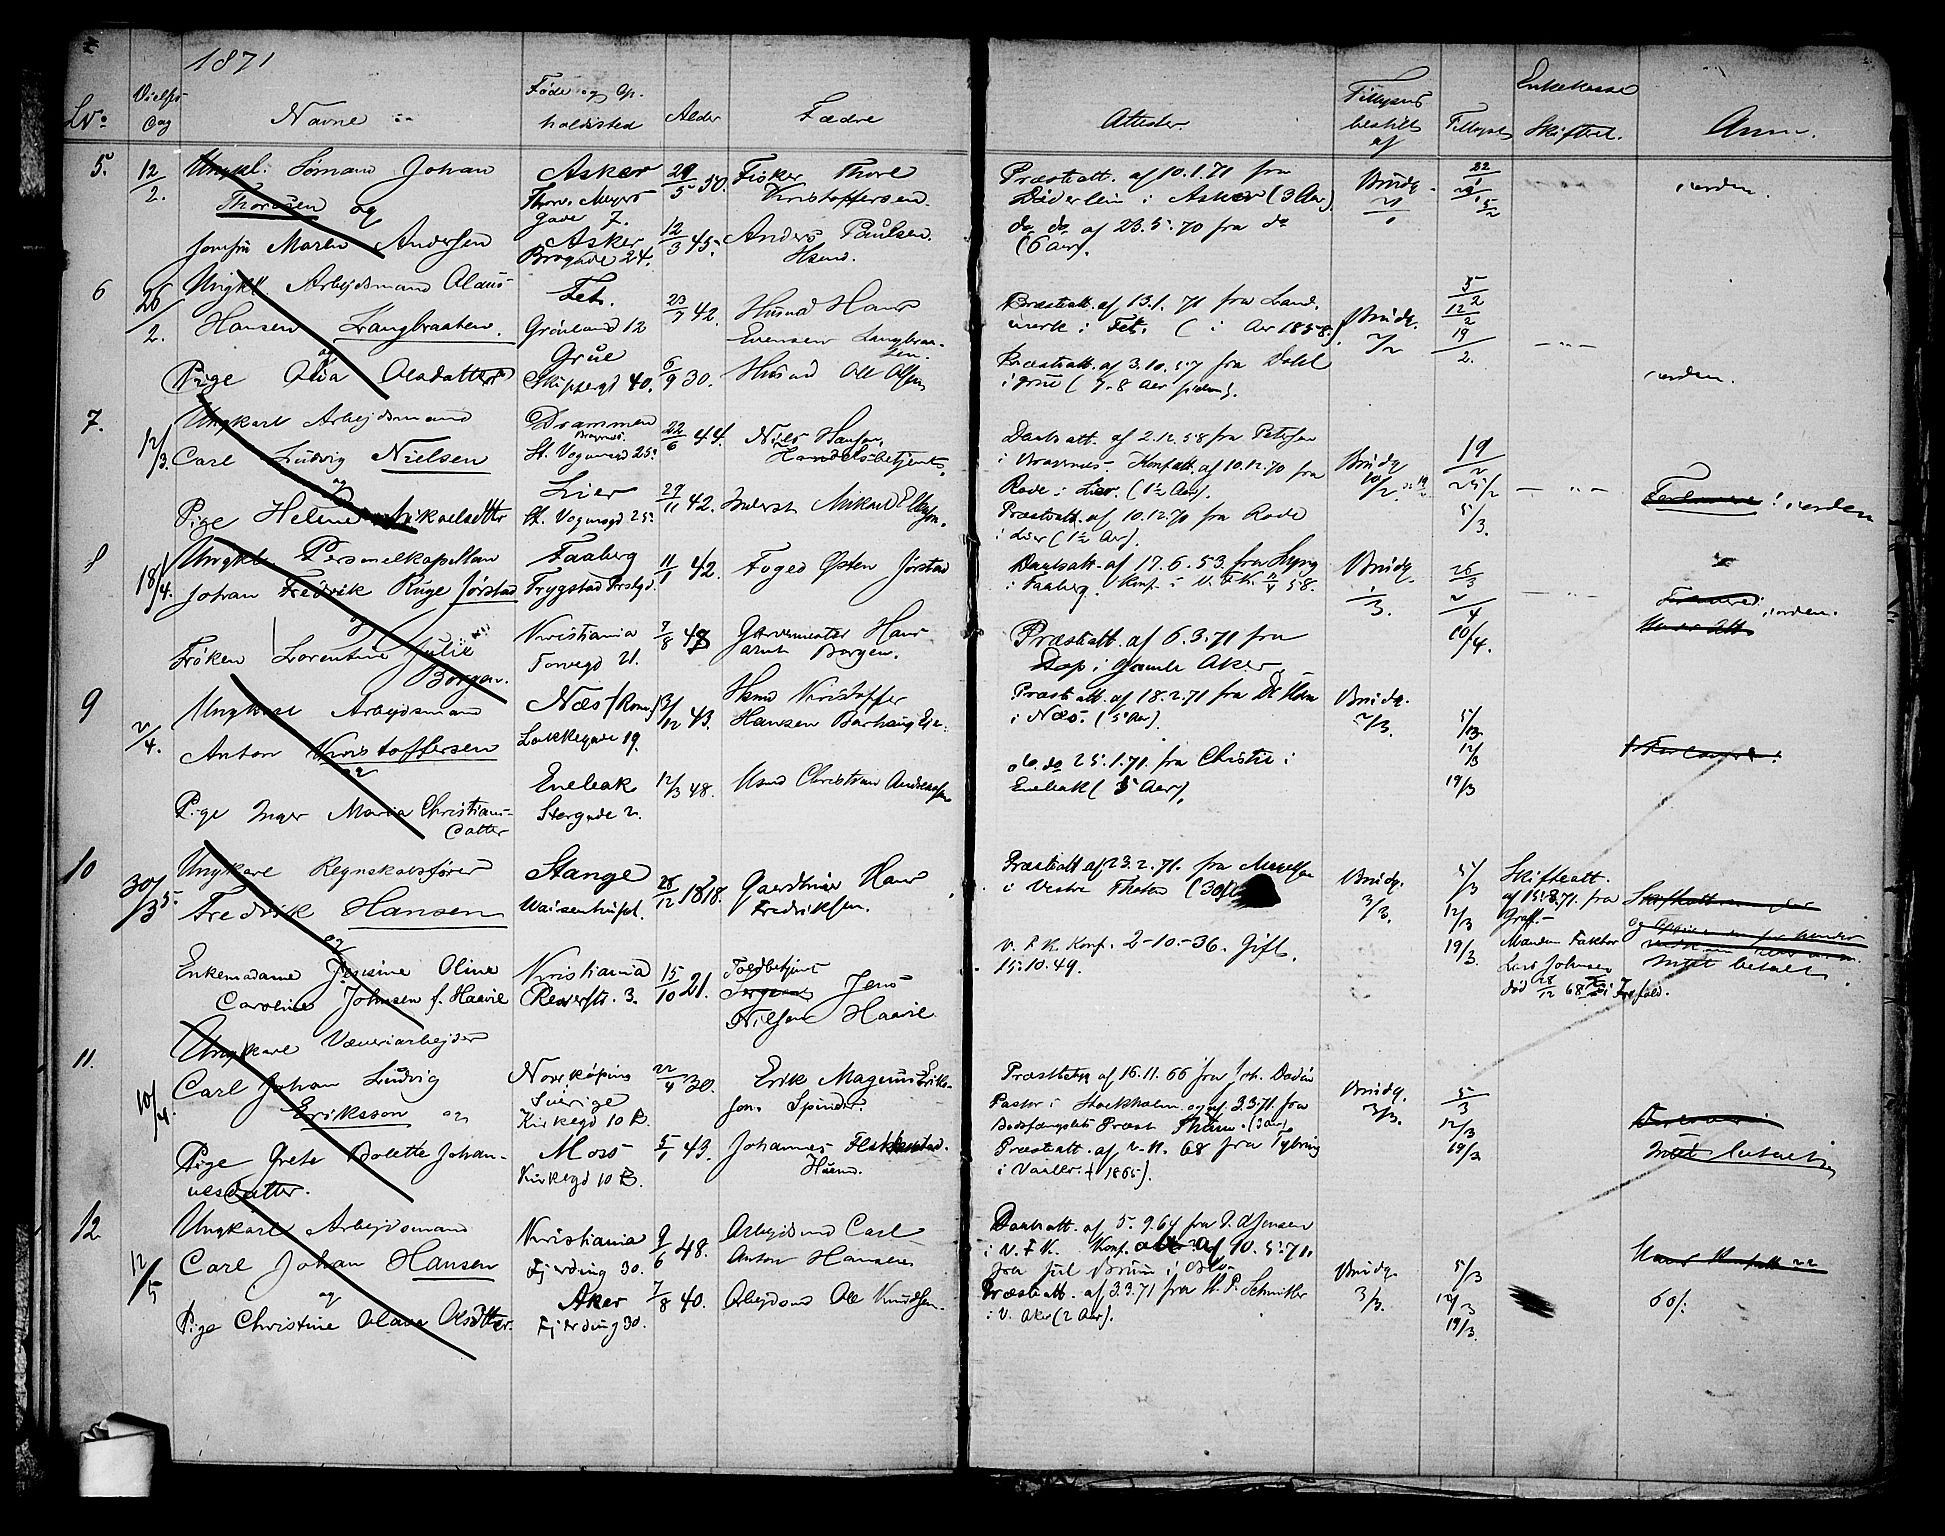 1871
No
Vielses
Dag
Navne
Føde og Op-
holdssted
Alder
Fædre
Attester.
Tillysnig
bestilt
af
Tillyst
Enkekasse
Skifteret.
Anm.
5. 12/2. Ungkl. Sømand Johan
Thoresen og
Jomfru Maren Andersen
Asker
Thorv. Meyers
gade 7.
Asker
Brogade 24.
29/5 50.
12/3 45.
Fisker Thore
Kristoffersen.
Anders Paulsen.
Hsmd.
Præsteatt. af 10.1.71 fra
Döderlein i Asker (3 Aar).
do do af 23.5.70 fra do
(6 Aar).
Brudg.
orden.
6 26/2. Ungkl Arbejdsmand Olaus
Hansen Langbraaten.
og
Pige Olia Olsdatter
Fet.
Grönland 12
Grue
Skippergd 40.
23/7 42.
6/9 30.
Husmd Hans
Evensen Langbraa-
ten.
Husmd Ole Olsen
Præsteatt. af 13.1.71 fra Land-
merk i Fet. ( i Aar 1858).
Præsteatt. af 3.10.57 fra Dahl
i Grue ( 7-8 Aar siden).
Brudg.
5/2
12/2
19/2.
orden.
7. 12/3. Ungkarl Arbejdsmand
Carl Ludvig Nielsen
og
Pige Helene Mikaelsdatter
Drammen
Bragernes.
St. Vognmgd 25.
Lier
St. Vognmgd 25.
22/6 44.
29/11 42.
Niels Hansen,
Handelsbetjent.
Inderst Mikael Ellefsen.
Daabsatt. af 2.12.58 fra Petersen
i Bragernes. Konfatt. af 10.12.70 fra
Rode i Lier. (1½ Aar).
Præsteatt. af 10.12.70 fra Rode
i Lier (1½ Aar).
Brudg
19/2
5/3.
! orden
8 18/4. Ungkl. Personelkapellan
Johan Fredrik Ruge Jørstad
og
Frøken Lorentine Julie
Borgen.
Faaberg
Trygstad Præstgd.
Kristiania
Torvegd 21.
11/1 42.
7/8 48
Foged Østen Jørstad
Garvermester Hans
Jacob Borgen.
Daabsatt. af 17.6.53. fra
i Faaberg. Konf. i V.F.K. 58.
Præsteatt. af 6.3.71 fra
Dop i gamle Aker.
Brudg.
26/3
2/4
10/4.
orden.
9 2/4. Ungkarl Arbejdsmand
Anton Kristoffersen
og
Pige Inger Maria Christians-
datter
Næs (Rom.)
Lakkegade 19.
Enebak
Storgade 2.
13/12 43.
12/3 48.
Hsmd Kristoffer
Hansen Borhaug Eje.
Hsmd Christian Andreassen
Præsteatt. af 18.2.71 fra
i Næs. (5 Aar).
do do 25.1.71. fra Christie i
Enebak ( 5 Aar).
Brudg.
2/3.
5/3.
12/3
19/3
10 30/3. Ungkarl Regnskabsfører
Fredrik Hansen
og
Enkemadame Jensine Oline
Caroline Johnsen f. Haavie
Stange
Waisenhuset.
Kristiania
Reverstr. 3.
26/12 1818.
15/10 21.
Gaardbruger Hans
Fredriksen.
Toldbetjent
Jens
Nilsen Haavie
Præsteatt af 23.2.71. fra
i Vestre Thoten (30
V. F. K. Konf. 2-10-36. Gift.
15.10.49.
Brudg.
3/3.
5/3
12/3
19/3.
Skifteatt.
af 15.3.71. fra
Graff.
Manden Faktor
Lars Johnsen
død 28/12 68
Intet betalt
11. 10/4. Ungkarl Væveriarbejder
Carl Johan Ludvig
Eriksson og
Pige Grete Bolette Johan-
nesdatter.
Norrköping
Sverige
Kirkegd 10 B.
Moss
Kirkegd 10 B.
22/4 30.
5/1 43.
Erik Magnus Eriks-
son. Spinder.
Johannes
Husmd.
Præstbetg af 16.11.66 fra Joh. Dadin
Pastor i Stockholm og af 3.3.71. fra
Bodsfængslets Præst
Præsteatt. af 2.11.68 fra Tybring
i Vaaler. ( 1865).
Brudg.
3/3.
5/3
12/3
19/3.
Intet betalt
12. 12/5 Ungkarl Arbejdsmand
Carl Johan Hansen
og
Pige Christine Olava Olsdtter.
Kristiania
Fjerding 30.
Aker
Fjerding 30.
9/6 48.
7/8 40.
Arbejdsmd Carl
Anton Hansen
Arbejdsmd Ole Knudsen
Daabsatt. af 5.9.64 fra J. A. Jensen
i V.F.K. Konf. att. af 10.5.71.
fra Jul. Bruun i Oslo
Præsteatt. af 3.3.71 fra H. P. Schnitler
i V. Aker (2 Aar).
Brudg.
3/3.
5/3
12/3
19/3.
60/: